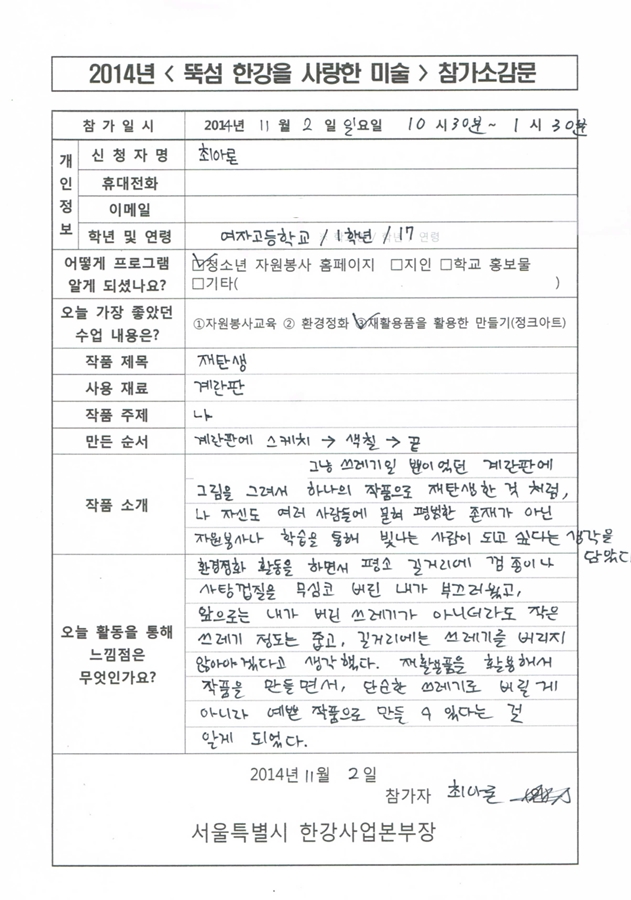 2014년 < 뚝섬 한강을 사랑한 미술 > 참가소감문
참 가 일 시 2014년 11 월 2 일 일요일 10 시 30분~ 1 시 30분
개인정보
신 청 자 명 최아론
휴대전화
이메일
학년 및 연령 여자고등학교 / 1학년 / 17
어떻게 프로그램 알게 되셨나요?
☑청소년 자원봉사 홈페이지 □지인 □학교 홍보물
□기타( )
오늘 가장 좋았던 수업 내용은?
①자원봉사교육 ② 환경정화 ③재활용품을 활용한 만들기(정크아트)
작품 제목 재탄생
사용 재료 계란판
작품 주제 나
만든 순서 계란판에 스케치 → 색칠 → 끝
작품 소개
그냥 쓰레기일 뿐이었던 계란판에
그림을 그려서 하나의 작품으로 재탄생한 것 처럼,
나 자신도 여러 사람들에 묻혀 평범한 존재가 아닌
자원봉사나 학습을 통해 빛나는 사람이 되고 싶다는 생각을
담았다
오늘 활동을 통해 느낌점은 무엇인가요?
환경정화 활동을 하면서 평소 길거리에 껌 종이나
사탕껍질을 무심코 버린 내가 부끄러웠고,
앞으로는 내가 버린 쓰레기가 아니더라도 작은
쓰레기 정도는 줍고, 길거리에는 쓰레기를 버리지
않아야겠다고 생각했다. 재활용품을 활용해서
작품을 만들면서, 단순한 쓰레기로 버릴 게
아니라 예쁜 작품으로 만들 수 있다는 걸
알게 되었다.
2014년 11월 2 일
참가자 최아론
서울특별시 한강사업본부장